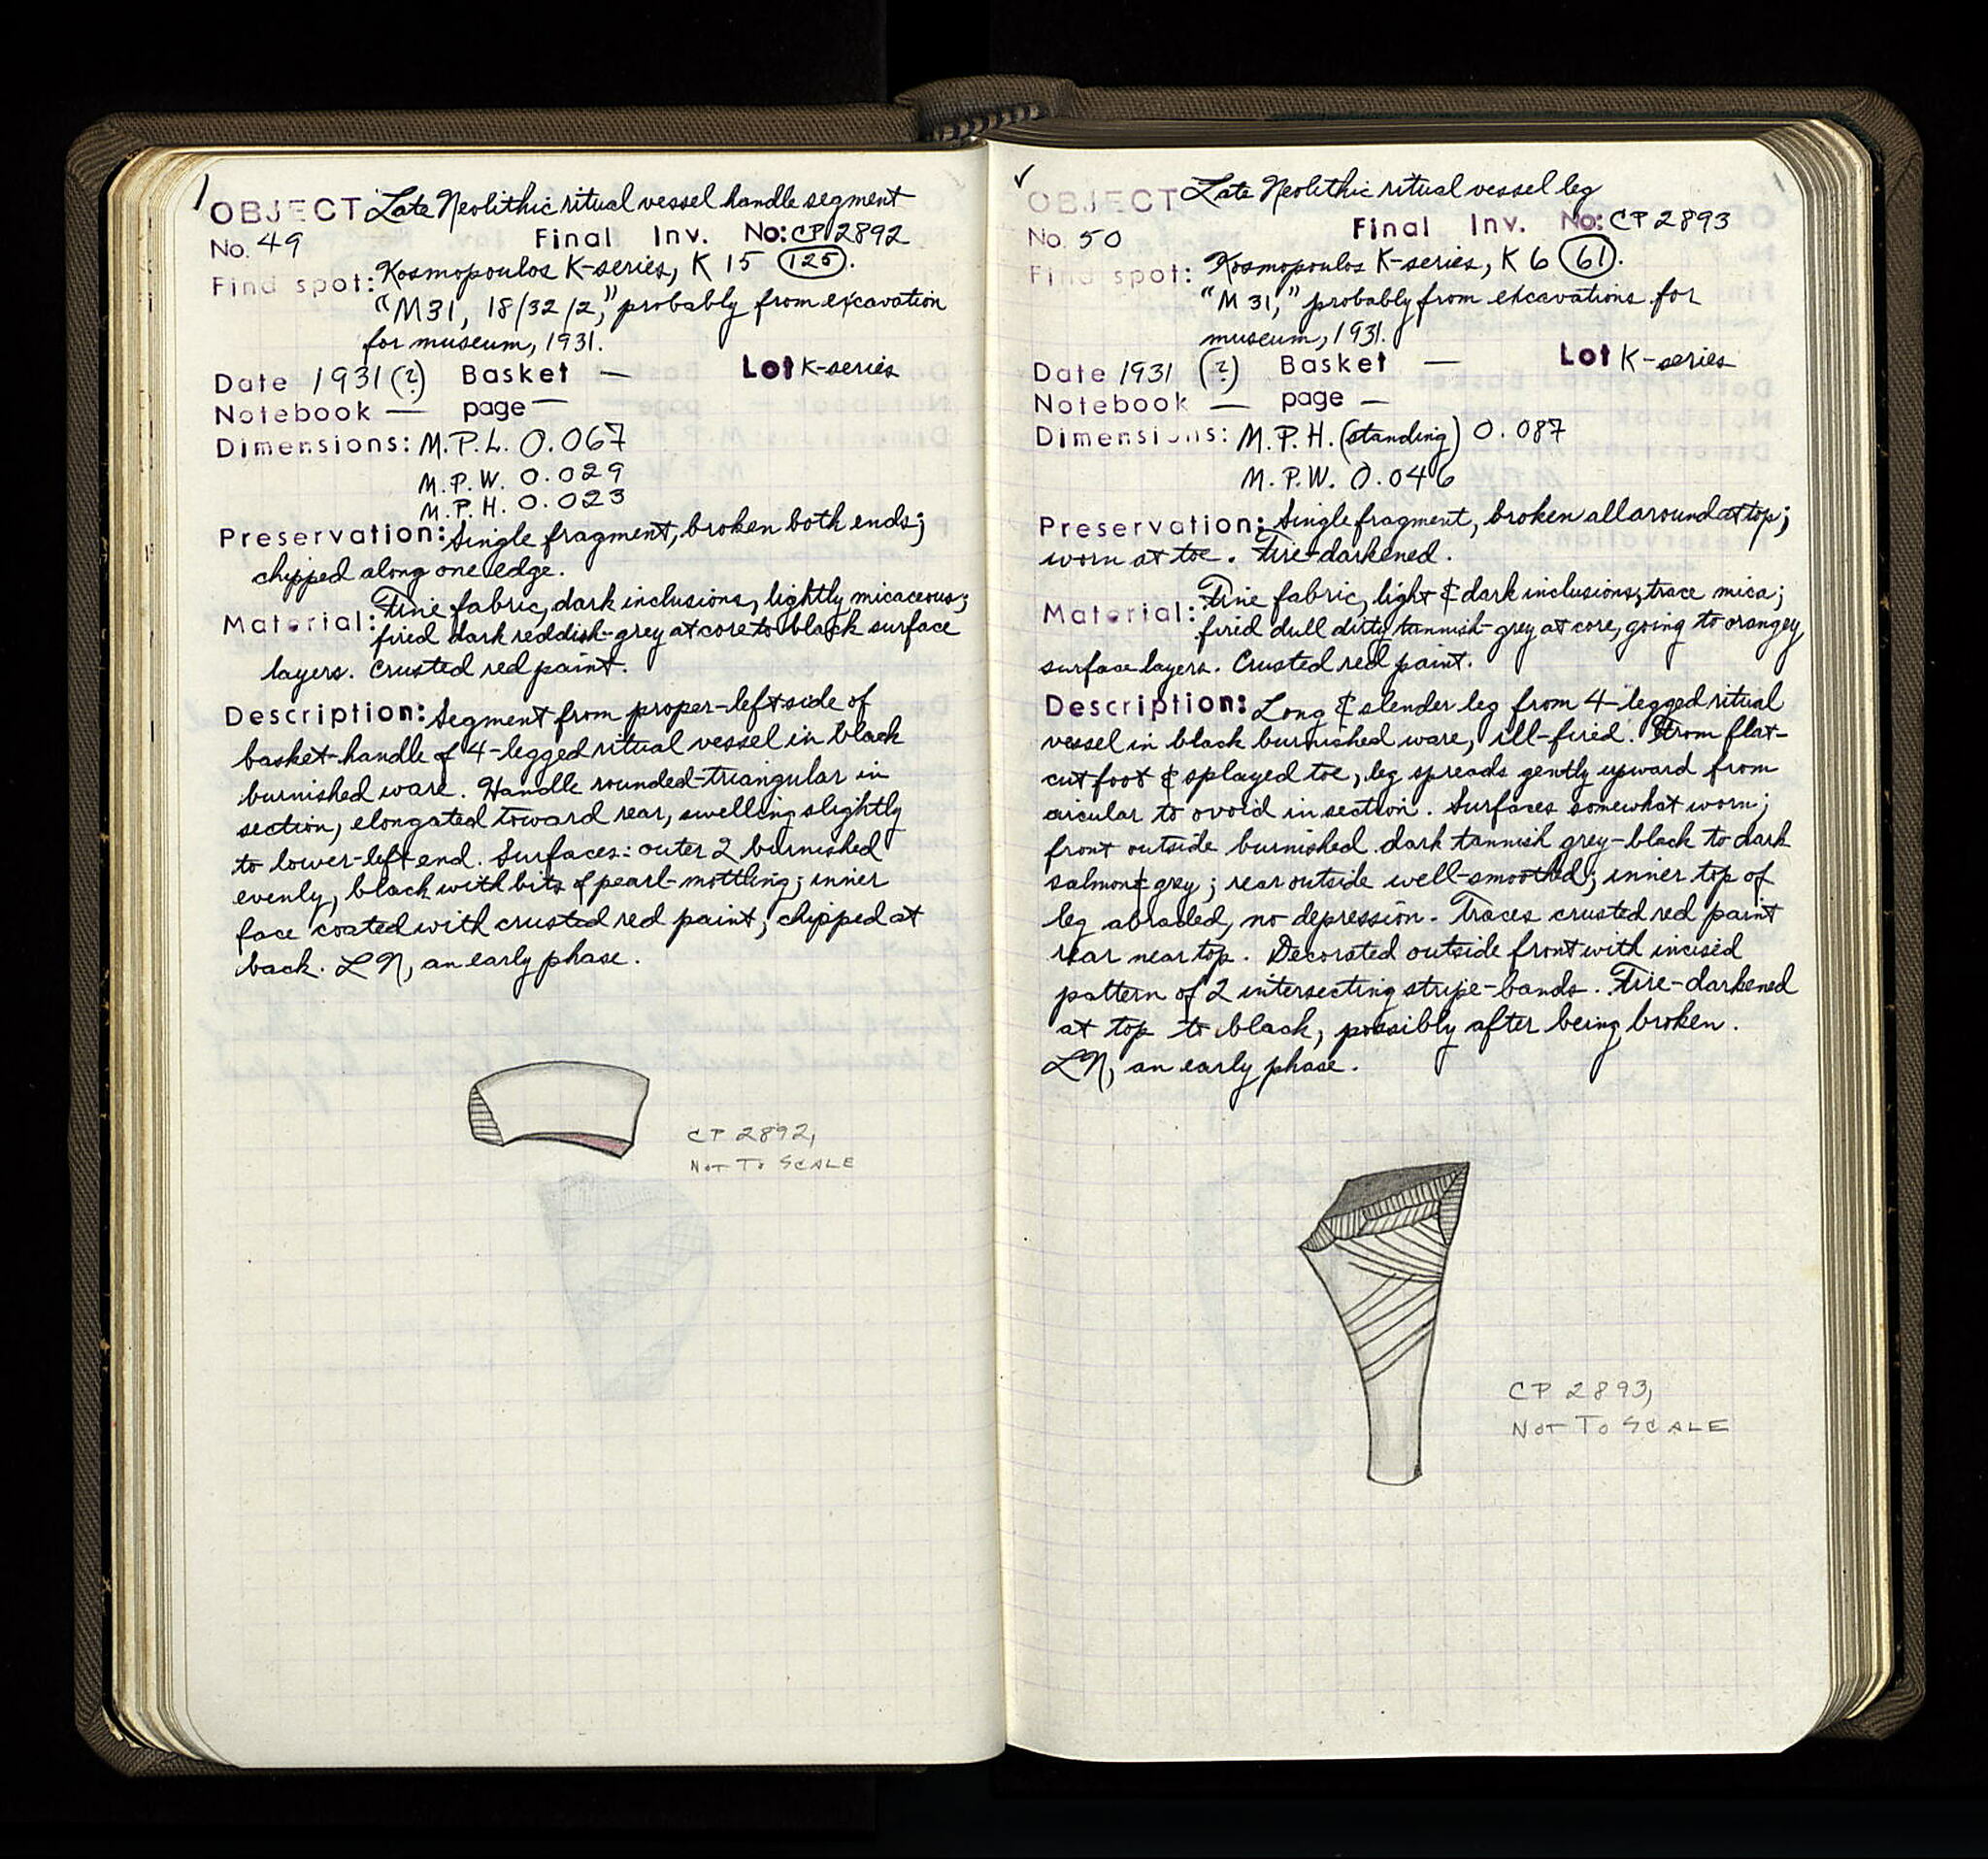 OBJECT Late Neolithic ritual vessel handle segment
No. 49 Final Inv. No: CP 2892
Find spot: Kosmopoulos K-series, K 15 (125).
"M31, 18/32/2," probably from excavation
for museum, 1931.
Date 1931 (?) Basket — Lot K-series
Notebook — page —
Dimensions: M.P.L. 0.067
M.P.W. 0.029
M.P.H. 0.023
Preservation: Single fragment, broken both ends;
chipped along one edge.
Material: Fine fabric, dark inclusions, lightly micaceous;
fired dark reddish-grey at core to black surface
layers. Crusted red paint.
Description: Segment from proper-left side of
basket-handle of 4-legged ritual vessel in black
burnished ware. Handle rounded-triangular in
section, elongated toward rear, swelling slightly
to lower-left end. Surfaces: outer 2 burnished
evenly, black with bits of pearl-mottling; inner
face coated with crusted red paint; chipped at
back. LN, an early phase.
CP 2892,
NOT TO SCALE
✓
OBJECT Late Neolithic ritual vessel leg
No. 50 Final Inv. No: CP 2893
Find spot: Kosmopoulos K-series, K 6 (61).
"M 31," probably from excavations for
museum, 1931.
Date 1931 (?) Basket — Lot K-series
Notebook — page —
Dimensions: M.P.H. (standing) 0.087
M.P.W. 0.046
Preservation: Single fragment, broken all around at top;
worn at toe. Fire-darkened.
Material: Fine fabric, light & dark inclusions, trace mica;
fired dull dirty tannish-grey at core, going to orangey
surface layers. Crusted red paint.
Description: Long & slender leg from 4-legged ritual
vessel in black burnished ware, ill-fired. From flat-
cut foot & splayed toe, leg spreads gently upward from
circular to ovoid in section. Surfaces somewhat worn;
front outside burnished dark tannish grey-black to dark
salmon & grey; rear outside well-smoothed; inner top of
leg abraded, no depression. Traces crusted red paint
rear near top. Decorated outside front with incised
pattern of 2 intersecting stripe-bands. Fire-darkened
at top to black, possibly after being broken.
LN, an early phase.
CP 2893,
NOT TO SCALE